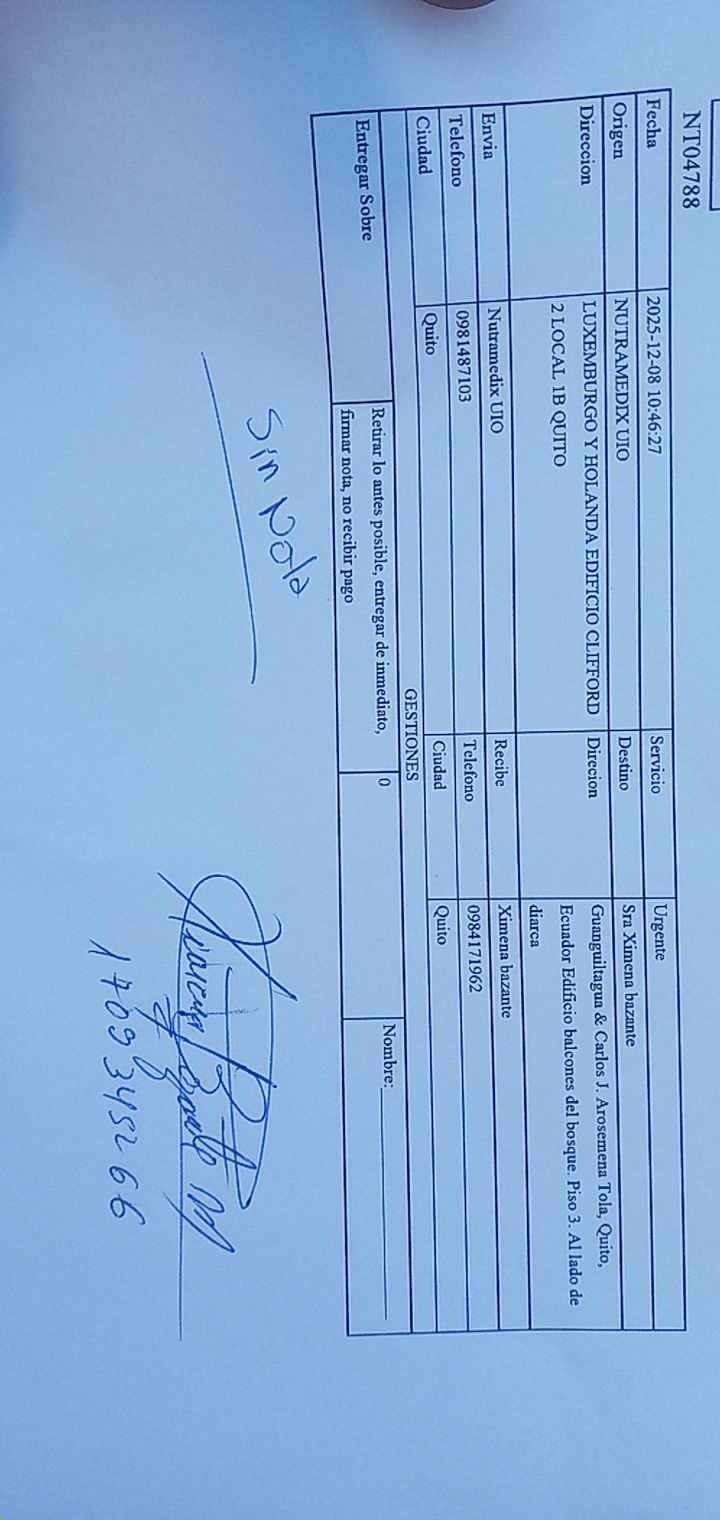 NT04788
Fecha 2025-12-08 10:46:27 Servicio Urgente
Origen NUTRAMEDIX UIO Destino Sra Ximena bazante
Direccion LUXEMBURGO Y HOLANDA EDIFICIO CLIFFORD Direcion Guanguiltagua & Carlos J. Arosemena Tola, Quito,
2 LOCAL 1B QUITO Ecuador Edificio balcones del bosque. Piso 3. Al lado de
diarca
Envia Nutramedix UIO Recibe Ximena bazante
Telefono 0981487103 Telefono 0984171962
Ciudad Quito Ciudad Quito
GESTIONES
Entregar Sobre Retirar lo antes posible, entregar de inmediato, 0 Nombre:
firmar nota, no recibir pago
Sin Nota
Ximena Bazante M
1709345266